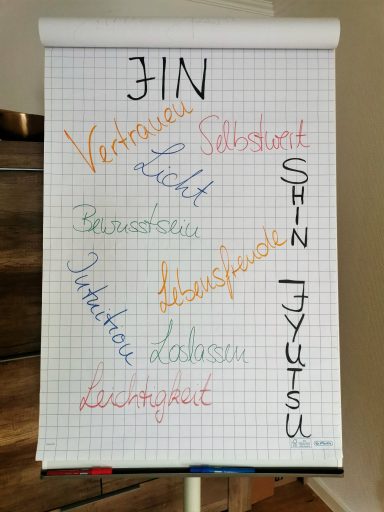 JIN
Vertrauen
Selbstwert
Licht
SHIN
Bewusstsein
Lebensfreude
Intuition
JYUTSU
Loslassen
Leichtigkeit